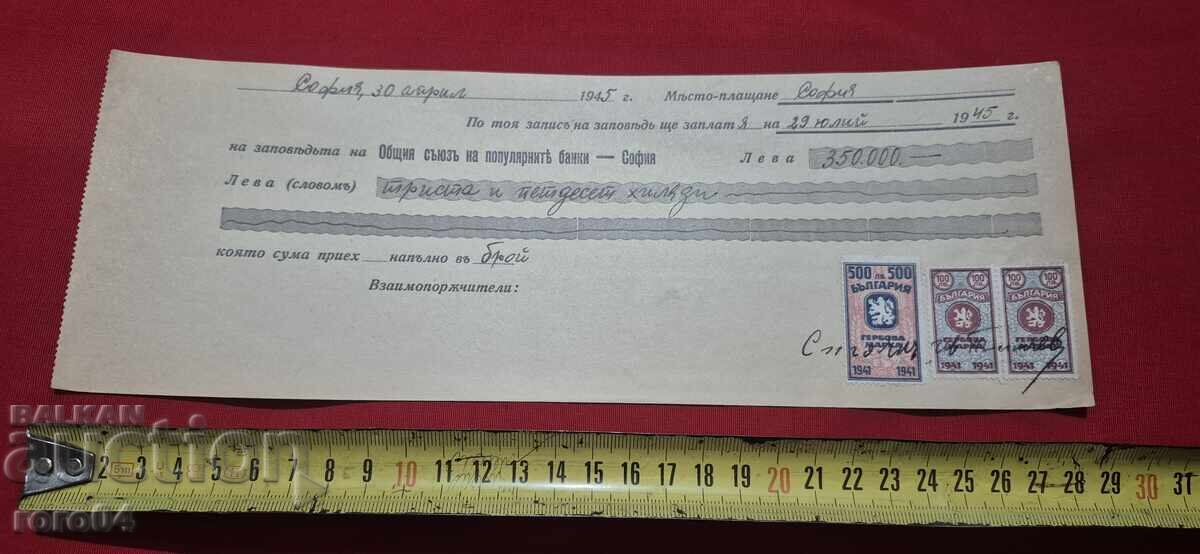 София, 30 априлъ 1945 г. Мѣсто-плащане София
По тоя записъ на заповѣдь ще заплатя на 29 юлий 1945 г.
на заповѣдьта на Общия съюзъ на популярнитѣ банки — София Лева 350.000.—
Лева (словомъ) триста и петдесет хиляди
която сума приех напълно въ брой
Взаимопоржчители:
500 лв. 500
БЪЛГАРИЯ
ГЕРБОВА МАРКА
1941 1941
100 ЛВ. 100 ЛВ.
БЪЛГАРИЯ
ГЕРБОВА МАРКА
1941 1941
100 ЛВ. 100 ЛВ.
БЪЛГАРИЯ
ГЕРБОВА МАРКА
1941 1941
BALKAN
auction
roro04
2 3 4 5 6 7 8 9 10 11 12 13 14 15 16 17 18 19 20 21 22 23 24 25 26 27 28 29 30 31